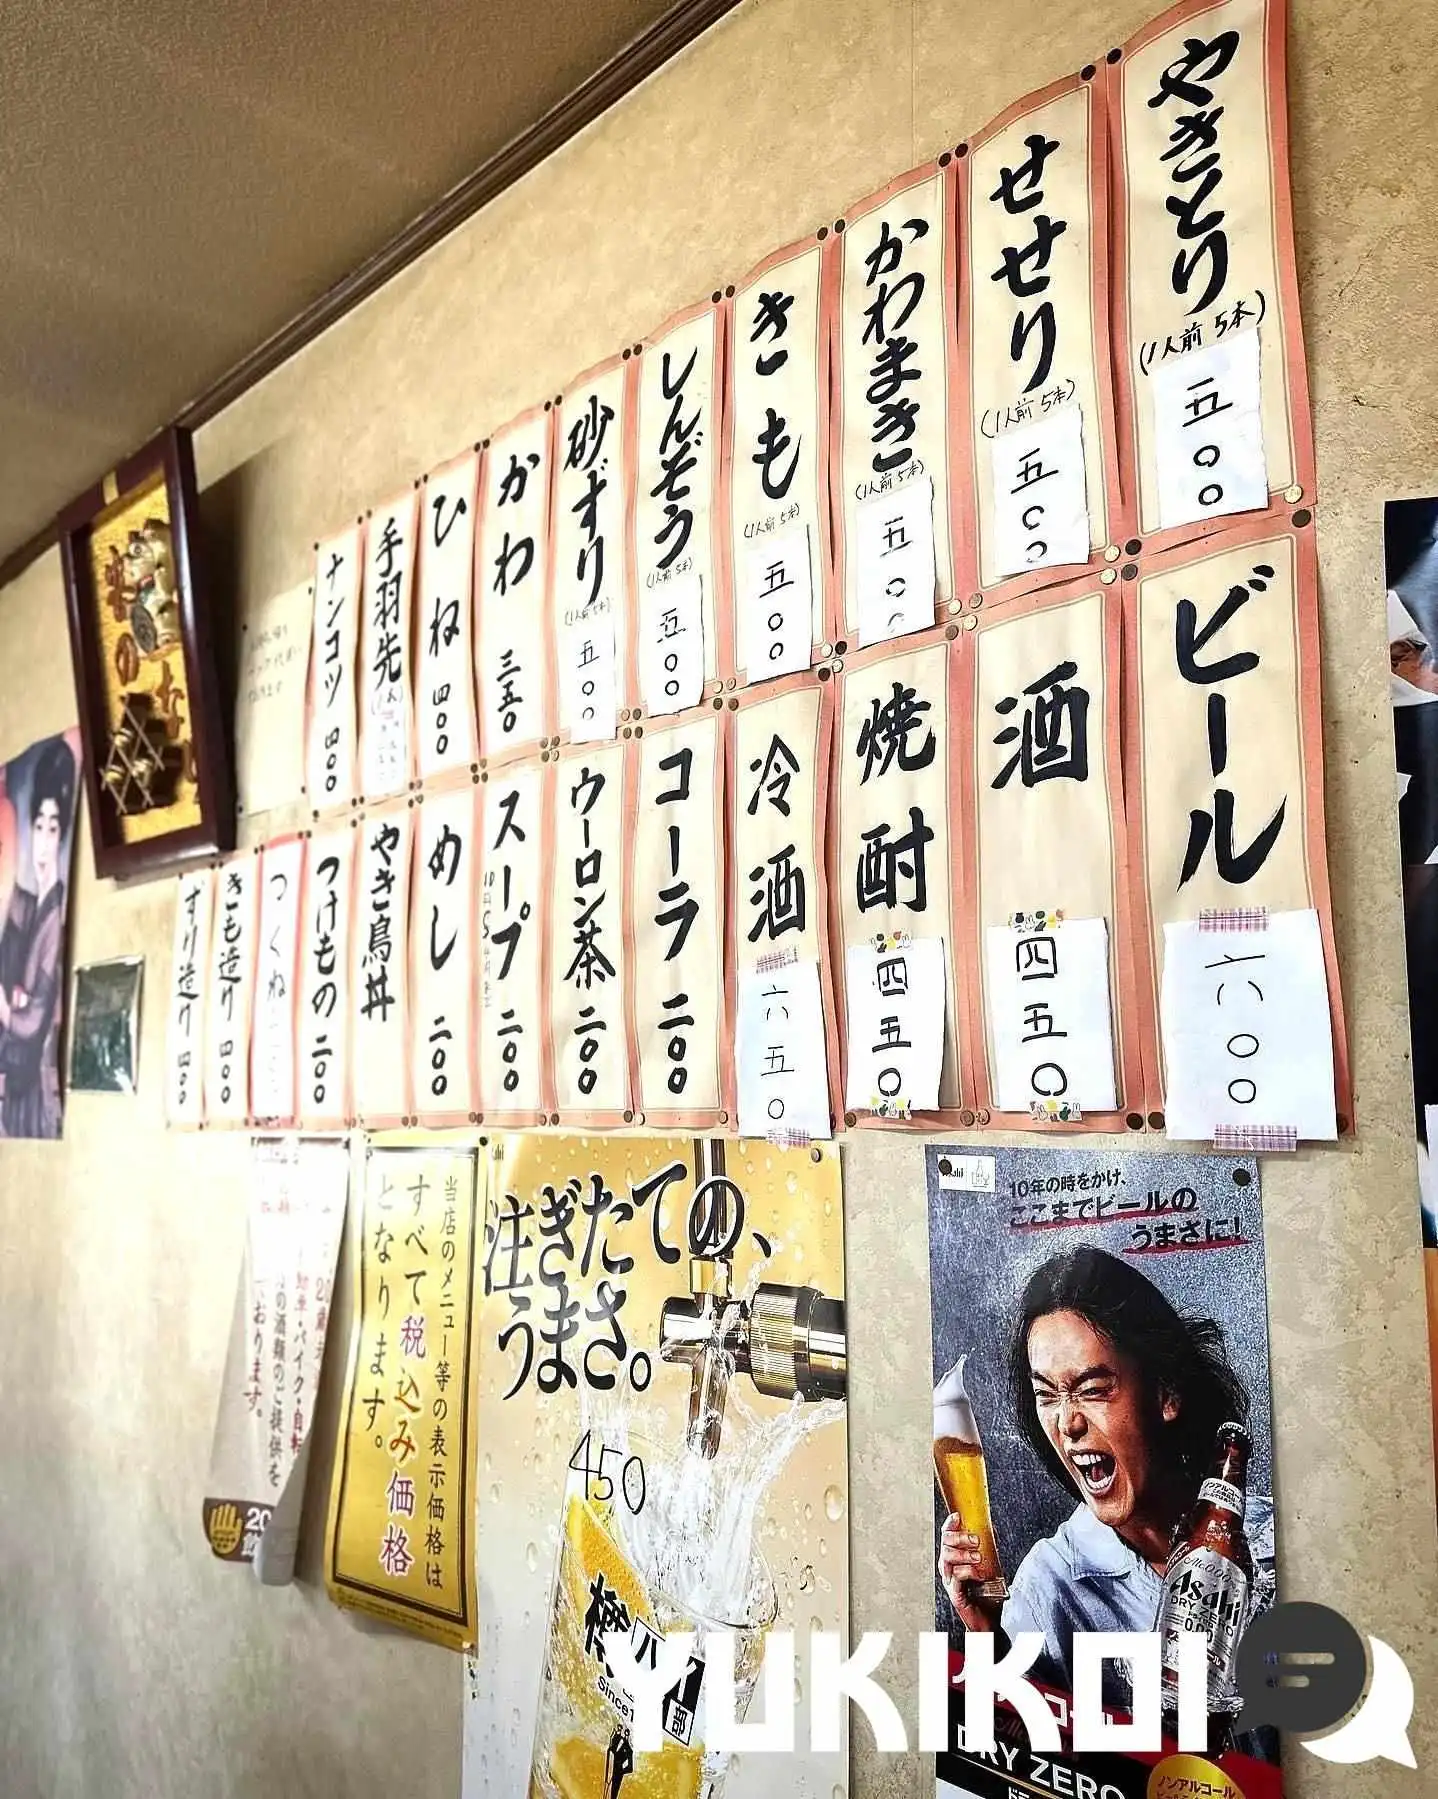 やきとり
(1人前 5本)
五〇〇
せせり
(1人前 5本)
五〇〇
かわまき
(1人前 5本)
五〇〇
きも
(1人前 5本)
五〇〇
しんぞう
(1人前 5本)
五〇〇
砂ずり
(1人前 5本)
五〇〇
かわ 三五〇
ひね 四〇〇
手羽先
ナンコツ 四〇〇
ビール
六〇〇
酒
四五〇
焼酎
四五〇
冷酒
六五〇
コーラ 二〇〇
ウーロン茶 二〇〇
スープ 二〇〇
めし 二〇〇
やき鳥丼
つけもの 二〇〇
つくね
きも造り 四〇〇
ずり造り 四〇〇
当店のメニュー等の表示価格は
すべて税込み価格
となります。
自動車・バイク・自転
の酒類のご提供を
おります。
注ぎたての、
うまさ。
450
Asahi
10年の時をかけ、
ここまでビールの
うまさに!
Asahi
DRY ZERO
0.00
DRY ZERO
ノンアルコール
YUKIKOI